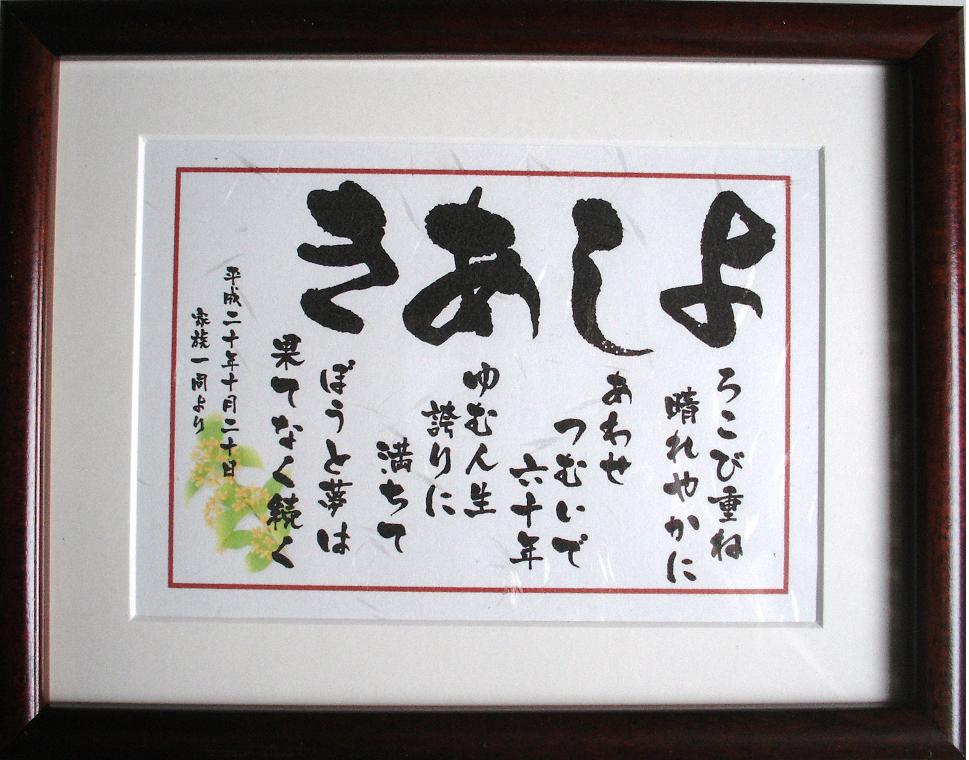 よろこび重ね
晴れやかに
しあわせ
つむいで
六十年
あゆむ人生
誇りに
満ちて
きぼうと夢は
果てなく続く
平成二十年十月二十日
家族一同より